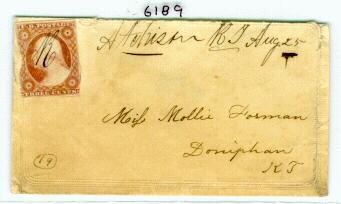 6189
U.S. POSTAGE
Atchison K T Aug 25
THREE CENTS
Miss Mollie Forman
Doniphan
KT